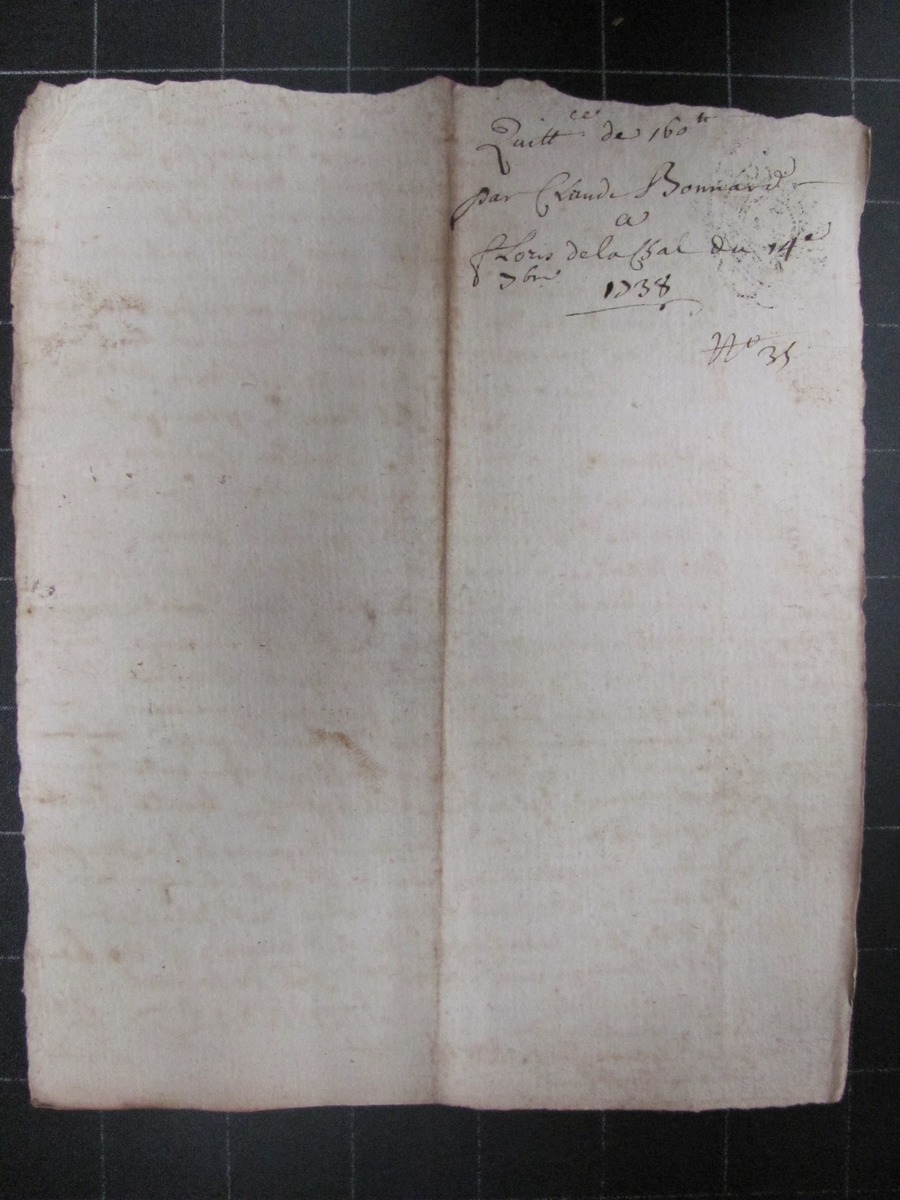 Quitt.ce de 160 tt
par Claude Bonnard
a
delachal du 14e
7bre 1738
No 35